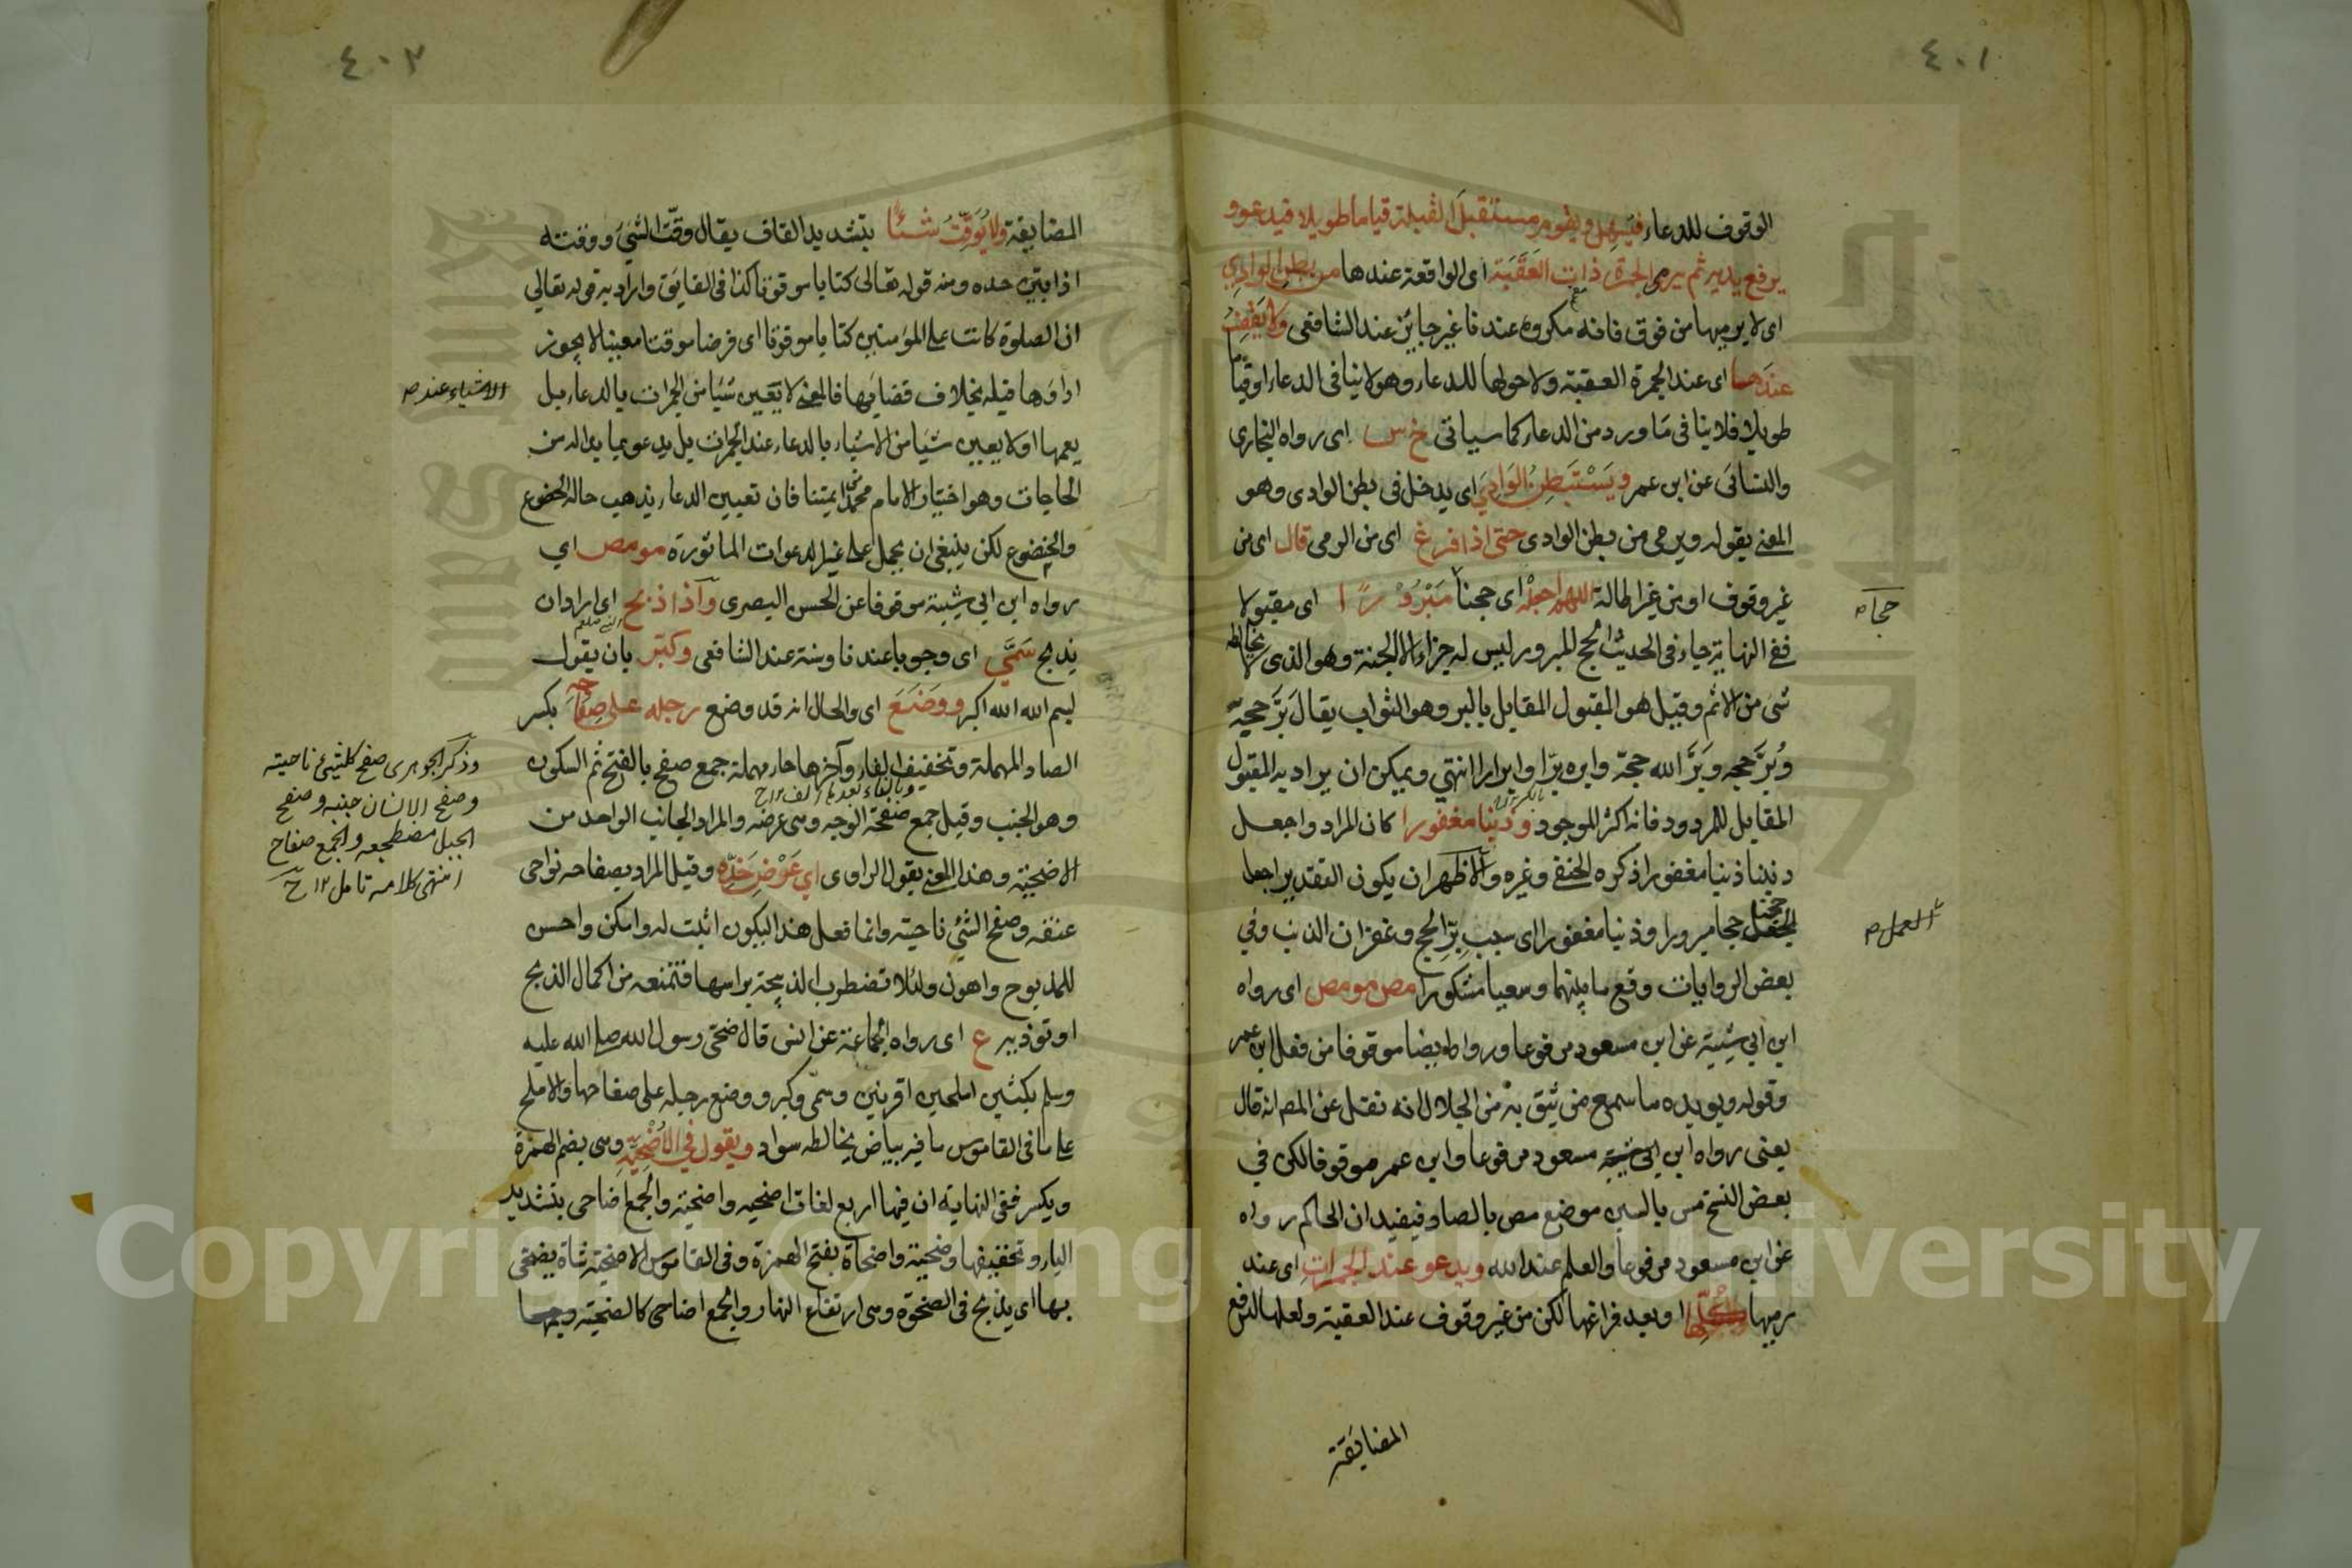 ٤٠١
الوقوف للدعاء فيسهل ويقوم مستقبل القبلة قياما طويلا فيدعو و
يرفع يديه ثم يرمى الجمرة ذات العقبة اى الواقعة عندها من بطن الوادي
اى لا يرميها من فوق فانه مكروه عندنا غير جائز عند الشافعى ولا يقف
عندها اى عند الجمرة العقبة ولا حولها للدعاء وهو لا ينافى الدعاء او قياما
طويلا فلا ينافى ما ورد من الدعاء كما سياتى خ س اى رواه البخارى
والنسائى عن ابن عمر ويستبطن الوادي اى يدخل فى بطن الوادى وهو
المعنى بقوله ويرمى من بطن الوادى حتى اذا فرغ اى من الرمى قال اى من
غير وقوف او من غير اطالة اللهم اجعله اى حجنا مبرورا اى مقبولا
حجا صح
ففى النهاية جاء فى الحديث الحج المبرور ليس له جزاء الا الجنة وهو الذى لا يخالطه
شئ من الاثم وقيل هو المقبول المقابل بالبر وهو الثواب يقال بَرَّ حجه
وبُرَّ حجه وبَرَّ الله حجه وابره برّا وابرارا انتهي ويمكن ان يراد به المقبول
المقابل للمردود فانه اكثر الموجود وذنبا مغفورا كان المراد واجعل
ذنبنا ذنبا مغفورا ذكره الحنفى وغيره والاظهر ان يكون التقدير اجعل
حجنا حجا مبرورا وذنبا مغفورا اى سبب برّ الحج وغفران الذنب وفي
العمل صح
بعض الروايات وقع ما بينهما وسعيا مشكورا مص مو مص اى رواه
ابن ابي شيبة عن ابن مسعود مرفوعا ورواه ايضا موقوفا من فعل ابن عمر
وقوله ويويده ما سمع من يثق به من الجلال انه نقل عن المص انه قال
يعنى رواه ابن ابى شيبة مسعود مرفوعا وابن عمر موقوفا لكن في
بعض النسخ مس بالسين موضع مص بالصاد فيفيد ان الحاكم رواه
عن ابن مسعود مرفوعا والعلم عند الله ويدعو عند الجمرات اى عند
رميها كلها او بعد فراغها لكن من غير وقوف عند العقبة ولعلها لدفع
المضايقة
٤٠٢
المضايقة ولا يوقت شيئا بتشديد القاف يقال وقّت الشئ ووقته
اذا بيّن حده ومنه قوله تعالى كتابا موقوتا كذا فى الفايق واراد به قوله تعالي
ان الصلوة كانت على المؤمنين كتابا موقوتا اى فرضا موقتا معينا لا يجوز
اداؤها قبله بخلاف قضائها فالمعنى لا يعين شيئا من الجمرات بالدعاء بل
الاشياء عند صح
يعمها او لا يعين شيئا من الاشياء بالدعاء عند الجمرات بل يدعو بما بدا له من
الحاجات وهو اختيار الامام محمد من ايمتنا فان تعيين الدعاء يذهب حالة الخضوع
والخضوع لكن ينبغى ان يحمل على غير الدعوات الماثورة مو مص اي
رواه ابن ابي شيبة موقوفا عن الحسن البصرى واذا ذبح اى اراد ان
يذبح سمَّي اى وجوبا عندنا وسنة عند الشافعى وكبّر بان يقول
بسم الله الله اكبر ووضع اى والحال انه قد وضع رجله على صفاحه بكسر
الصاد المهملة وتخفيف الفاء وآخرها حاء مهملة جمع صفح بالفتح ثم السكون
وهو الجنب وقيل جمع صفحة الوجه وهى عرضه والمراد الجانب الواحد من
الاضحية وهذا المعنى بقول الراوى اي عرض خدّه وقيل المراد بصفاحه نواحى
عنقه وصفح الشئ ناحيته وانما فعل هذا ليكون اثبت له وامكن واحسن
للمذبوح واهون ولئلا تضطرب الذبيحة براسها فتمنعه من اكمال الذبح
او توذيه ع اى رواه الجماعة عن انس قال ضحّى رسول الله صلى الله عليه
وسلم بكبشين املحين اقرنين وسمّى وكبر ووضع رجله على صفاحها والاملح
على ما فى القاموس ما فيه بياض يخالطه سواد ويقول في الاضحية وهى بضم الهمزة
ويكسر ففى النهاية ان فيها اربع لغات اضحيه واضحية والجمع اضاحى بتشديد
الياء وتخفيفها وضحية واضحاة بفتح الهمزة وفى القاموس الاضحية شاة يضحّى
بها اى يذبح فى الضحوة وهى ارتفاع النهار والجمع اضاحى كالضحية وجمعها
وذكر الجوهرى صفح كل شئ ناحيته
وصفح الانسان جنبه وصفح
الجبل مضطجعه والجمع صفاح
انتهى كلامه تامل ١٢ ح
Copyright © King Saud University